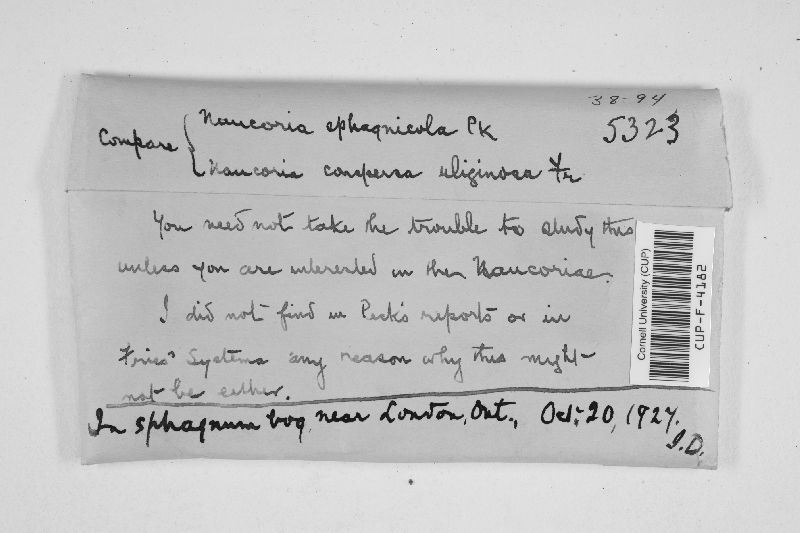 38-94
5323
Compare { Naucoria sphagnicola Pk
Naucoria conspersa uliginosa Fr
You need not take the trouble to study this
unless you are interested in the Naucoriae.
I did not find in Peck's reports or in
Fries' Systema any reason why this might
not be either.
In sphagnum bog, near London, Ont., Oct. 20, 1927.
J.D.
Cornell University (CUP)
CUP-F-4182